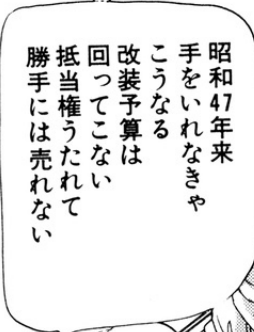 昭和47年来
手をいれなきゃ
こうなる
改装予算は
回ってこない
抵当権うたれて
勝手には売れない